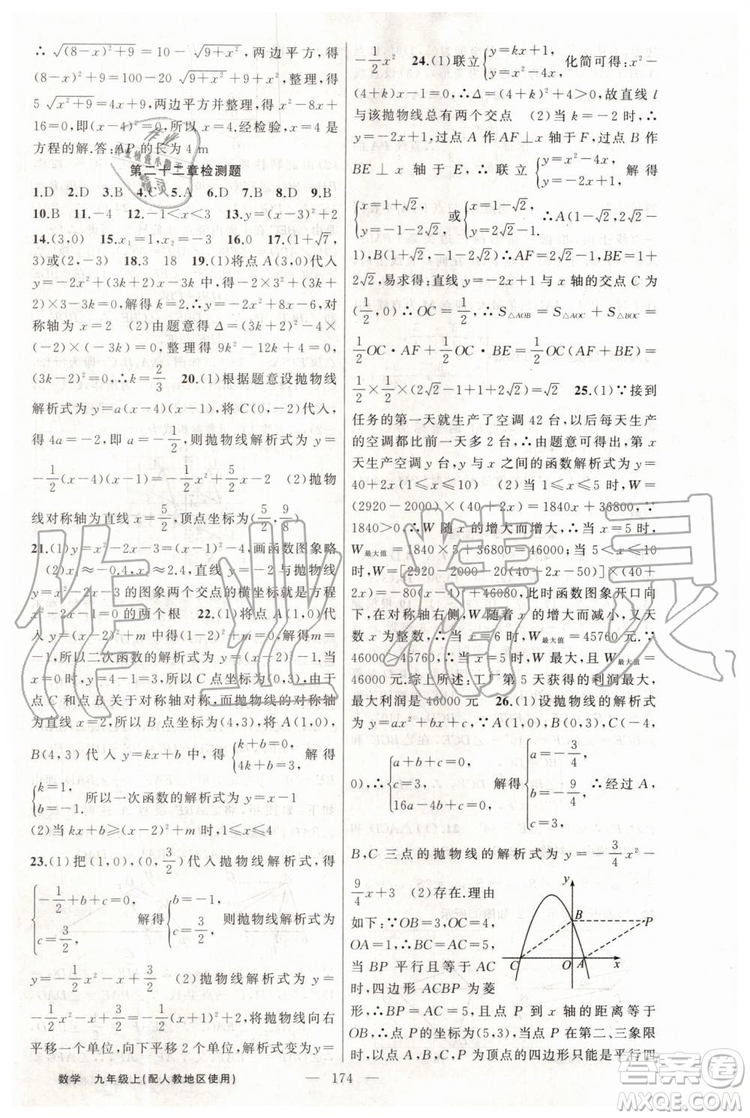 ∴ √((8−x)²+9) = 10 − √(9+x²), 两边平方, 得
(8−x)²+9=100+9+x²−20√(9+x²), 整理, 得
5√(x²+9)=29+4x, 两边平方并整理, 得 x²−8x+
16=0, 即(x−4)²=0, 所以 x=4, 经检验, x=4 是
方程的解. 答: AP 的长为 4 m
第二十二章检测题
1.D 2.D 3.B 4.C 5.A 6.D 7.D 8.D 9.B
10.B 11.−4 12.−1<x<3 13.y=(x−3)²+2
14.(3,0) 15.x₁=1,x₂=3 16.0 17.(1+√7,
3)或(2,−3) 18.3 18 19.(1)将点 A(3,0)代入
y=x²−(3k+2)x−3k(3k+2)中, 得
对称轴为 x=2 (2)由题意得
(3k−2)²=0, ∴k=2/3 20.(1)根据题意设抛物线
解析式为 y=a(x−4)(x−1), 将 C(0,−2)代入,
得 4a=−2, 即 a=−1/2, 则抛物线解析式为 y=
−1/2(x−4)(x−1)=−1/2x²+5/2x−2 (2)抛物
线对称轴为直线 x=5/2, 顶点坐标为(5/2, 9/8)
21.(1)
画函数图象略
的图象两个交点的横坐标就是方程
x²−2x−1=0 的两个根 22.(1)将点 A(1,0)代入
y=(x−2)²+m 中, 得(1−2)²+m=0, 解得 m=
−1, 所以二次函数的解析式为 y=(x−2)²−1. 当
x=0 时, y=4−1=3, 故 C 点坐标为(0,3), 由于
点 C 和点 B 关于对称轴对称,
所以 B 点坐标为(4,3), 将 A(1,0),
B(4,3)代入 y=kx+b 中, 得 {k+b=0, 4k+b=3, 解得
{k=1, b=−1. 所以一次函数的解析式为 y=x−1
(2)当 kx+b≥(x−2)²+m 时, 1≤x≤4
23.(1)把(1,0),(0,3/2)代入抛物线解析式, 得
{−1/2+b+c=0, c=3/2, 解得 {b=−1, c=3/2, 则抛物线解析式为
y=−1/2x²−x+3/2 (2)抛物线解析式为 y=
−1/2x²−x+3/2=−1/2(x+1)²+2, 将抛物线向右
平移一个单位, 向下平移 2 个单位, 解析式变为 y=
−1/2x² 24.(1)联立{y=kx+1, y=x²−4x, 化简可得: x²−
(4+k)x−1=0, ∴Δ=(4+k)²+4>0, 故直线 l
与该抛物线总有两个交点 (2)当 k=−2 时, ∴
y=−2x+1, 过点 A 作 AF⊥x 轴于 F, 过点 B 作
BE⊥x 轴于 E, ∴联立 {y=x²−4x, y=−2x+1, 解得:
{x=1+√2, y=−1−2√2, 或{x=1−√2, y=−1+2√2, ∴A(1−√2, 2√2−
1), B(1+√2, −1−2√2) ∴AF=2√2−1, BE=1+
2√2, 易求得: 直线 y=−2x+1 与 x 轴的交点 C 为
(1/2, 0) ∴OC=1/2, ∴S△AOB=S△AOC+S△BOC=
1/2OC·AF+1/2OC·BE=1/2OC(AF+BE)=
1/2×1/2×(2√2−1+1+2√2)=√2 25.(1)∵接到
任务的第一天就生产了空调 42 台, 以后每天生产
的空调都比前一天多 2 台, ∴由题意可得出, 第 x
天生产空调 y 台, y 与 x 之间的函数解析式为 y=
40+2x(1≤x≤10) (2)当 1≤x≤5 时, W=
(2920−2000)×(40+2x)=1840x+36800, ∵
1840>0, ∴W 随 x 的增大而增大, ∴当 x=5 时,
W最大值=1840×5+36800=46000; 当 5<x≤10
2x)=−80(x−4)²+46080, 此时函数图象开口向
下, 在对称轴右侧, W 随着 x 的增大而减小, 又天
数 x 为整数, ∴当 x=6 时, W最大值=45760 元. ∵
46000>45760, ∴当 x=5 时, W 最大, 且 W最大值=
46000 元. 综上所述: 工厂第 5 天获得的利润最大,
最大利润是 46000 元 26.(1)设抛物线的解析式
为 y=ax²+bx+c, ∵A(1,0), B(0,3), C(−4,0),
∴{a+b+c=0, c=3, 16a−4b+c=0, 解得{a=−3/4, b=−9/4, c=3, ∴经过 A,
B, C 三点的抛物线的解析式为 y=−3/4x²−
9/4x+3 (2)存在. 理由
如下: ∵OB=3, OC=4,
OA=1, ∴BC=AC=5,
当 BP 平行且等于 AC
时, 四边形 ACBP 为菱
形, ∴BP=AC=5, 且点 P 到 x 轴的距离等于
OB, ∴点 P 的坐标为(5,3), 当点 P 在第二、三象限
时, 以点 A,B,C,P 为顶点的四边形只能是平行四
y
B
P
C
O
A
x
数学 九年级上(配人教地区使用)
— 174 —
作业精灵